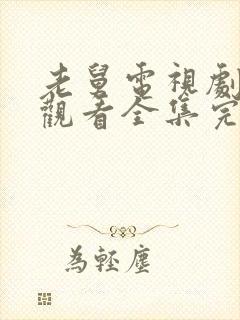 老舅電視劇
觀看全集完
為輕塵